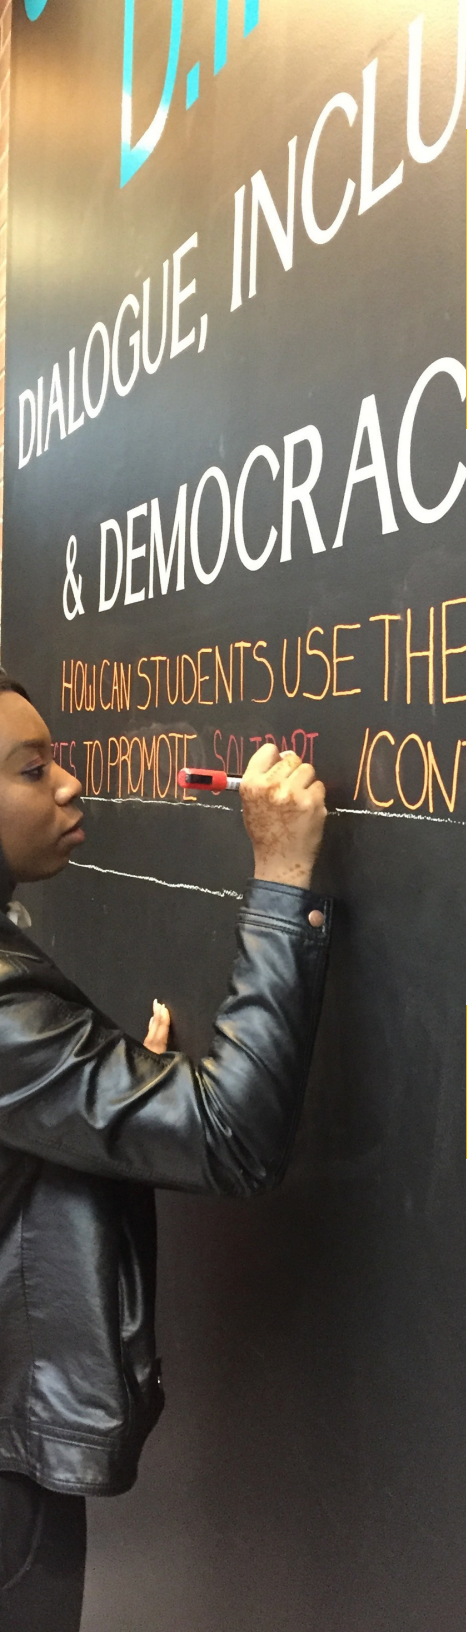 D.I
DIALOGUE, INCLU
& DEMOCRAC
HOW CAN STUDENTS USE THE
TO PROMOTE SOLIDART /CONT